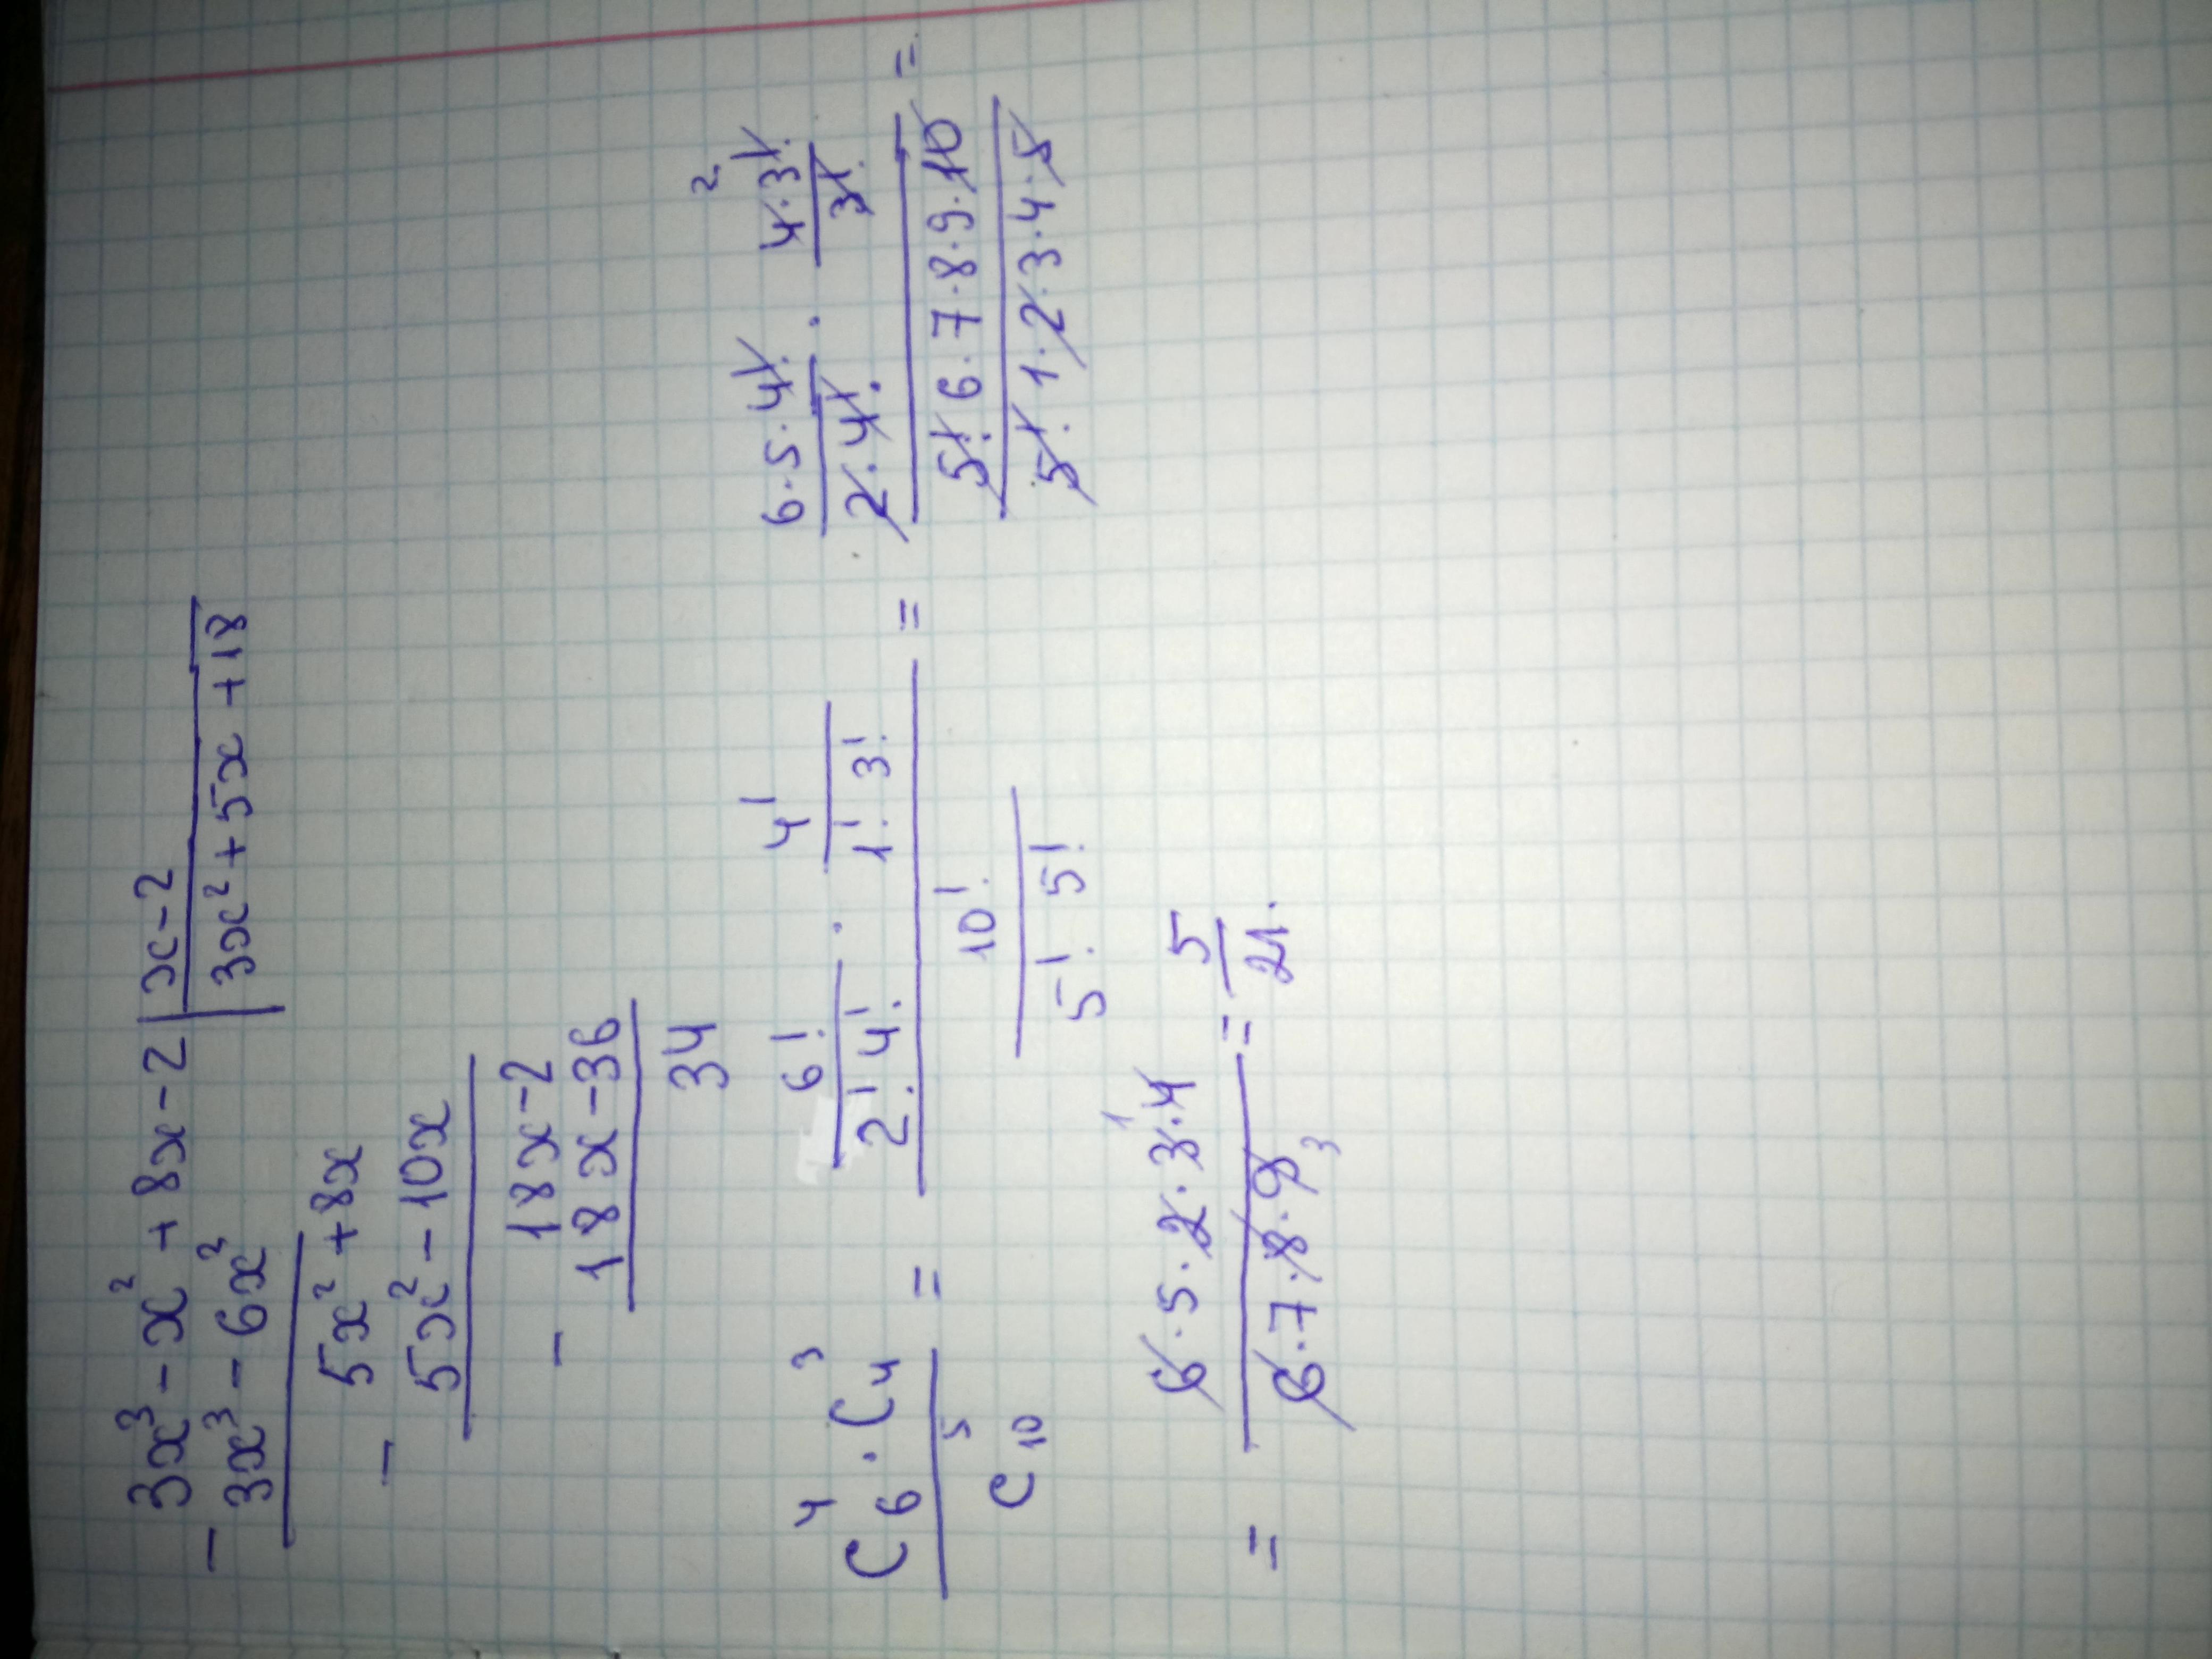 3x³ - x² + 8x - 2 | x - 2
- 3x³ - 6x² | 3x² + 5x + 18
5x² + 8x
- 5x² - 10x
18x - 2
- 18x - 36
34
C₆⁴ · C₄³ / C₁₀⁵ = (6! / 2! 4! · 4! / 1! 3!) / (10! / 5! 5!) = (6·5·4! / 2·4! · 4·3! / 3!) / (5!·6·7·8·9·10 / 5!·1·2·3·4·5) =
2
= 6·5·2·3·4 / 6·7·8·9 = 5/21.
1
3